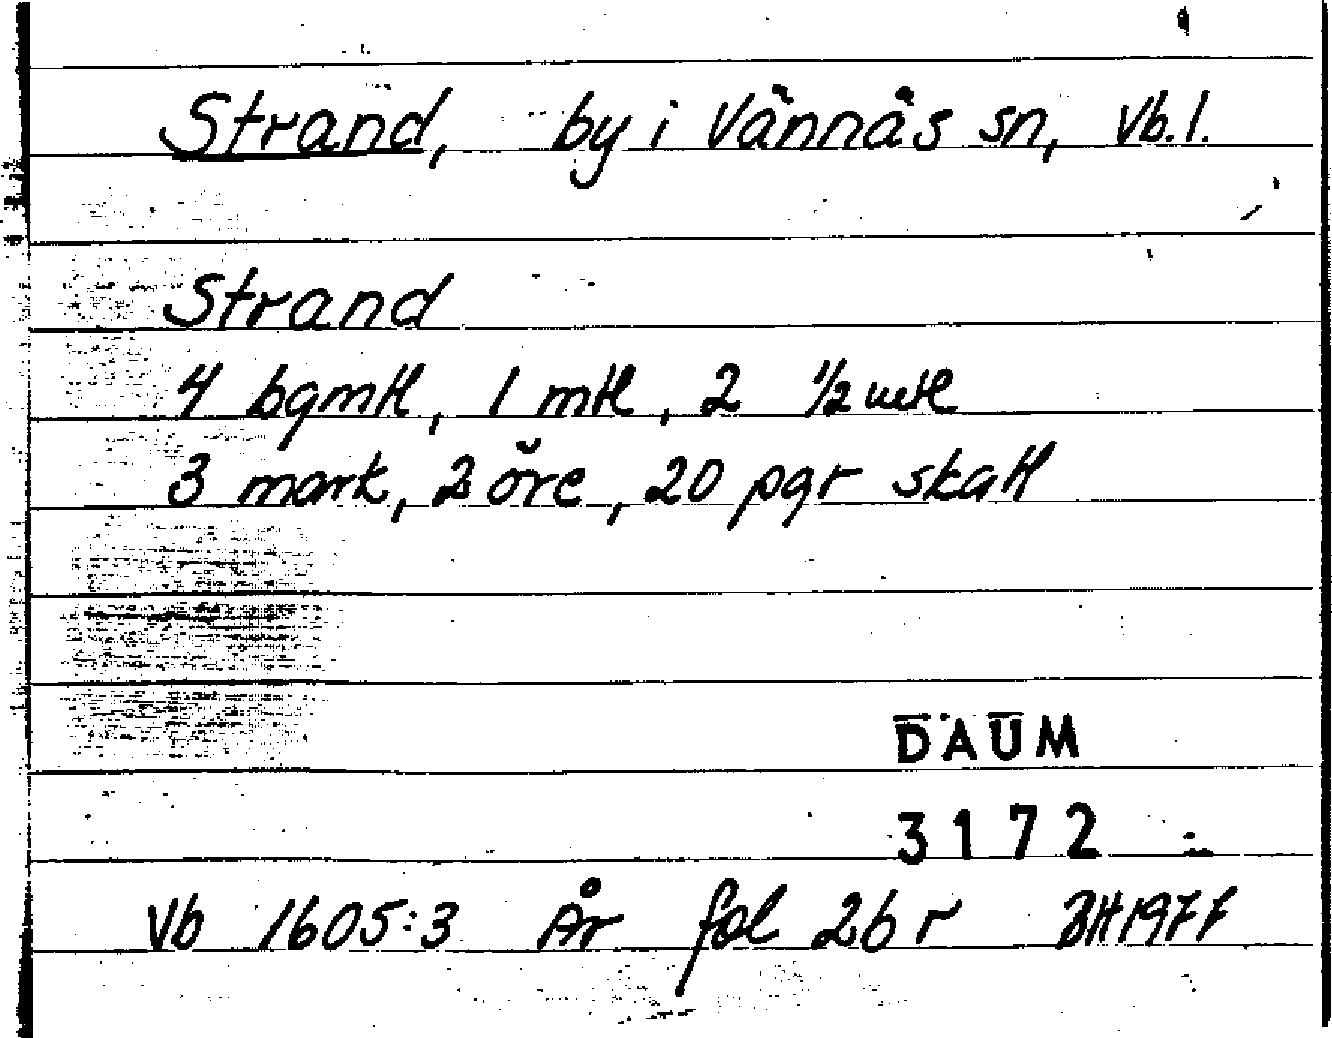 Strand, by i Vännäs sn, Vb.l.
Strand
4 bgmtl, 1 mtl, 2 1/2 mtl
3 mark, 2 öre, 20 pgr skatt
DAUM
3172
Vb 1605:3 År fol 26 r BH 1977